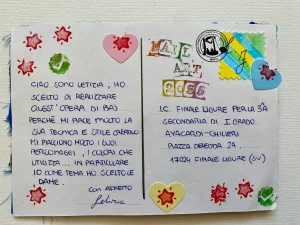 CIAO SONO LETIZIA, HO
SCELTO DI REALIZZARE
QUEST'OPERA DI BAJ
PERCHÉ MI PIACE MOLTO LA
SUA TECNICA E STILE CREATIVO
MI PIACCIONO MOLTO I SUOI
PERSONAGGI, I COLORI CHE
UTILIZZA... IN PARTICOLARE
IO COME TEMA HO SCELTO LE
DAME.
CON AFFETTO
Letizia
MAIL
ART
I.C. FINALE LIGURE PER LA 3ª
SECONDARIA DI I GRADO
PIAZZA 2A
17024 FINALE LIGURE (SV)